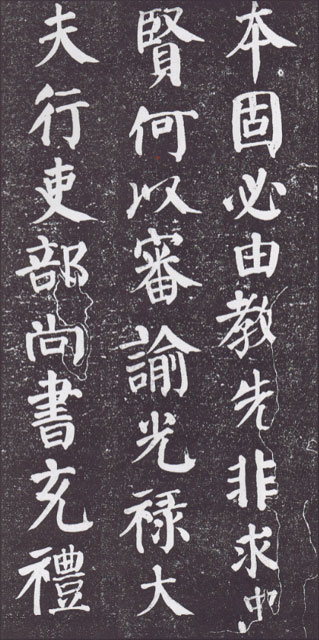 本固必由教先非求忠
賢何以審諭光禄大
夫行吏部尚書充禮